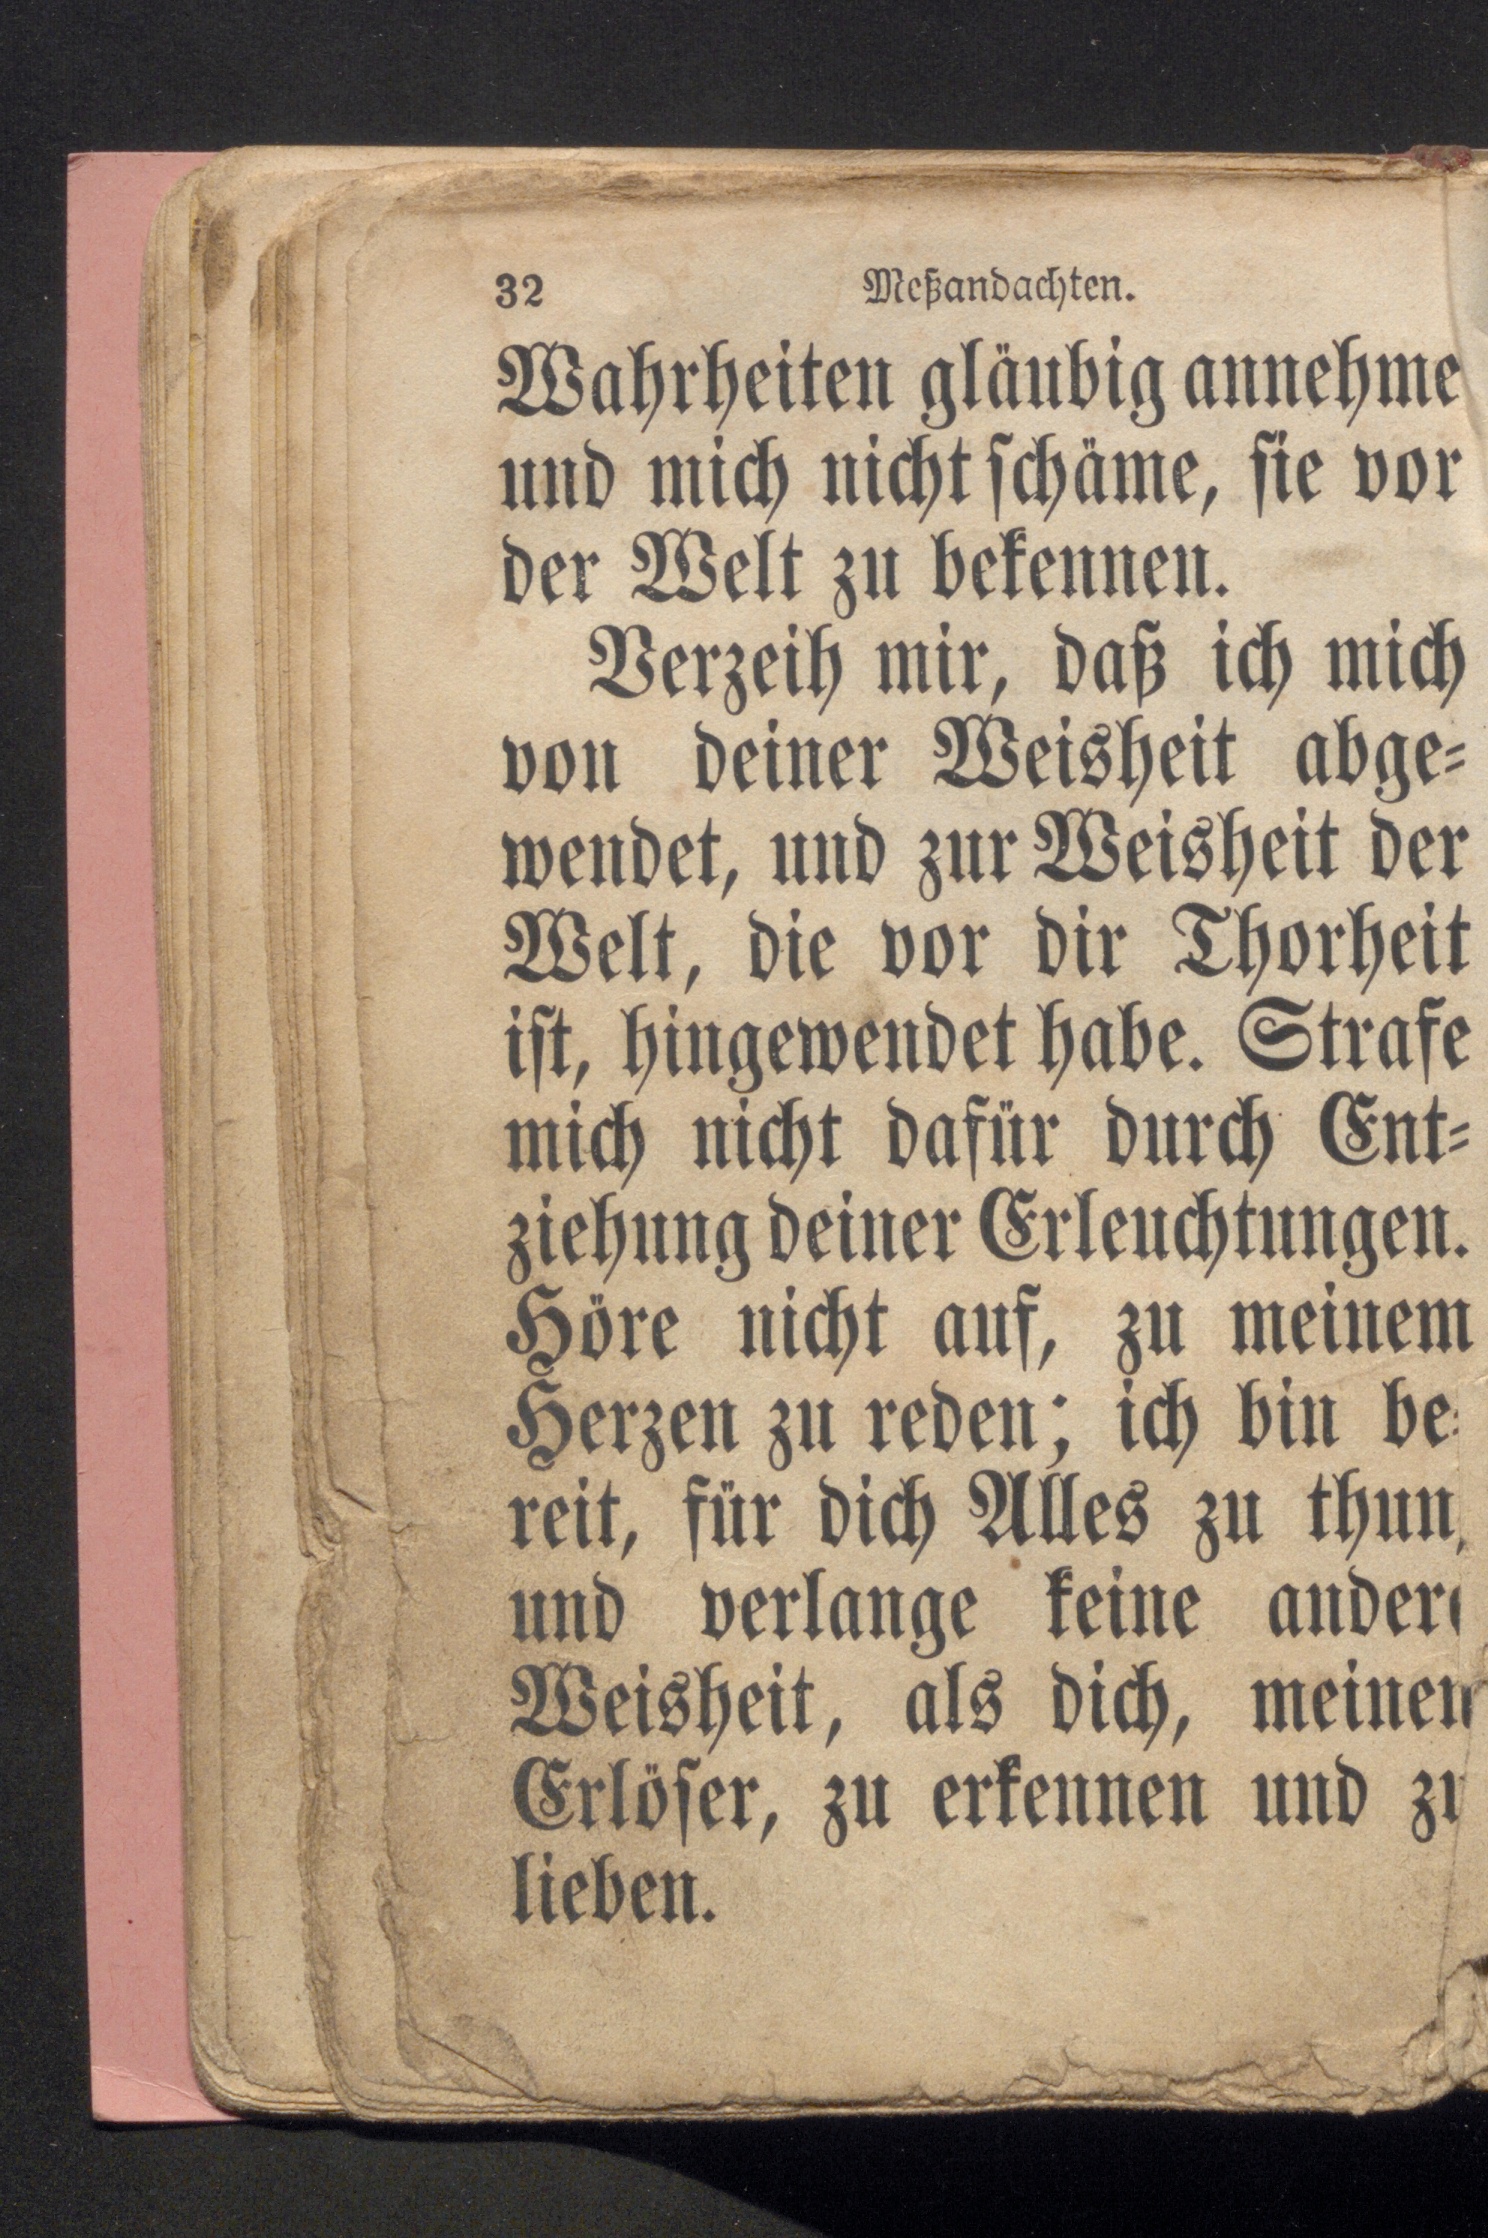 32 Meßandachten.
Wahrheiten gläubig annehme
und mich nicht schäme, sie vor
der Welt zu bekennen.
Verzeih mir, daß ich mich
von deiner Weisheit abge-
wendet, und zur Weisheit der
Welt, die vor dir Thorheit
ist, hingewendet habe. Strafe
mich nicht dafür durch Ent-
ziehung deiner Erleuchtungen.
Höre nicht auf, zu meinem
Herzen zu reden; ich bin be-
reit, für dich Alles zu thun,
und verlange keine andere
Weisheit, als dich, meinen
Erlöser, zu erkennen und zu
lieben.